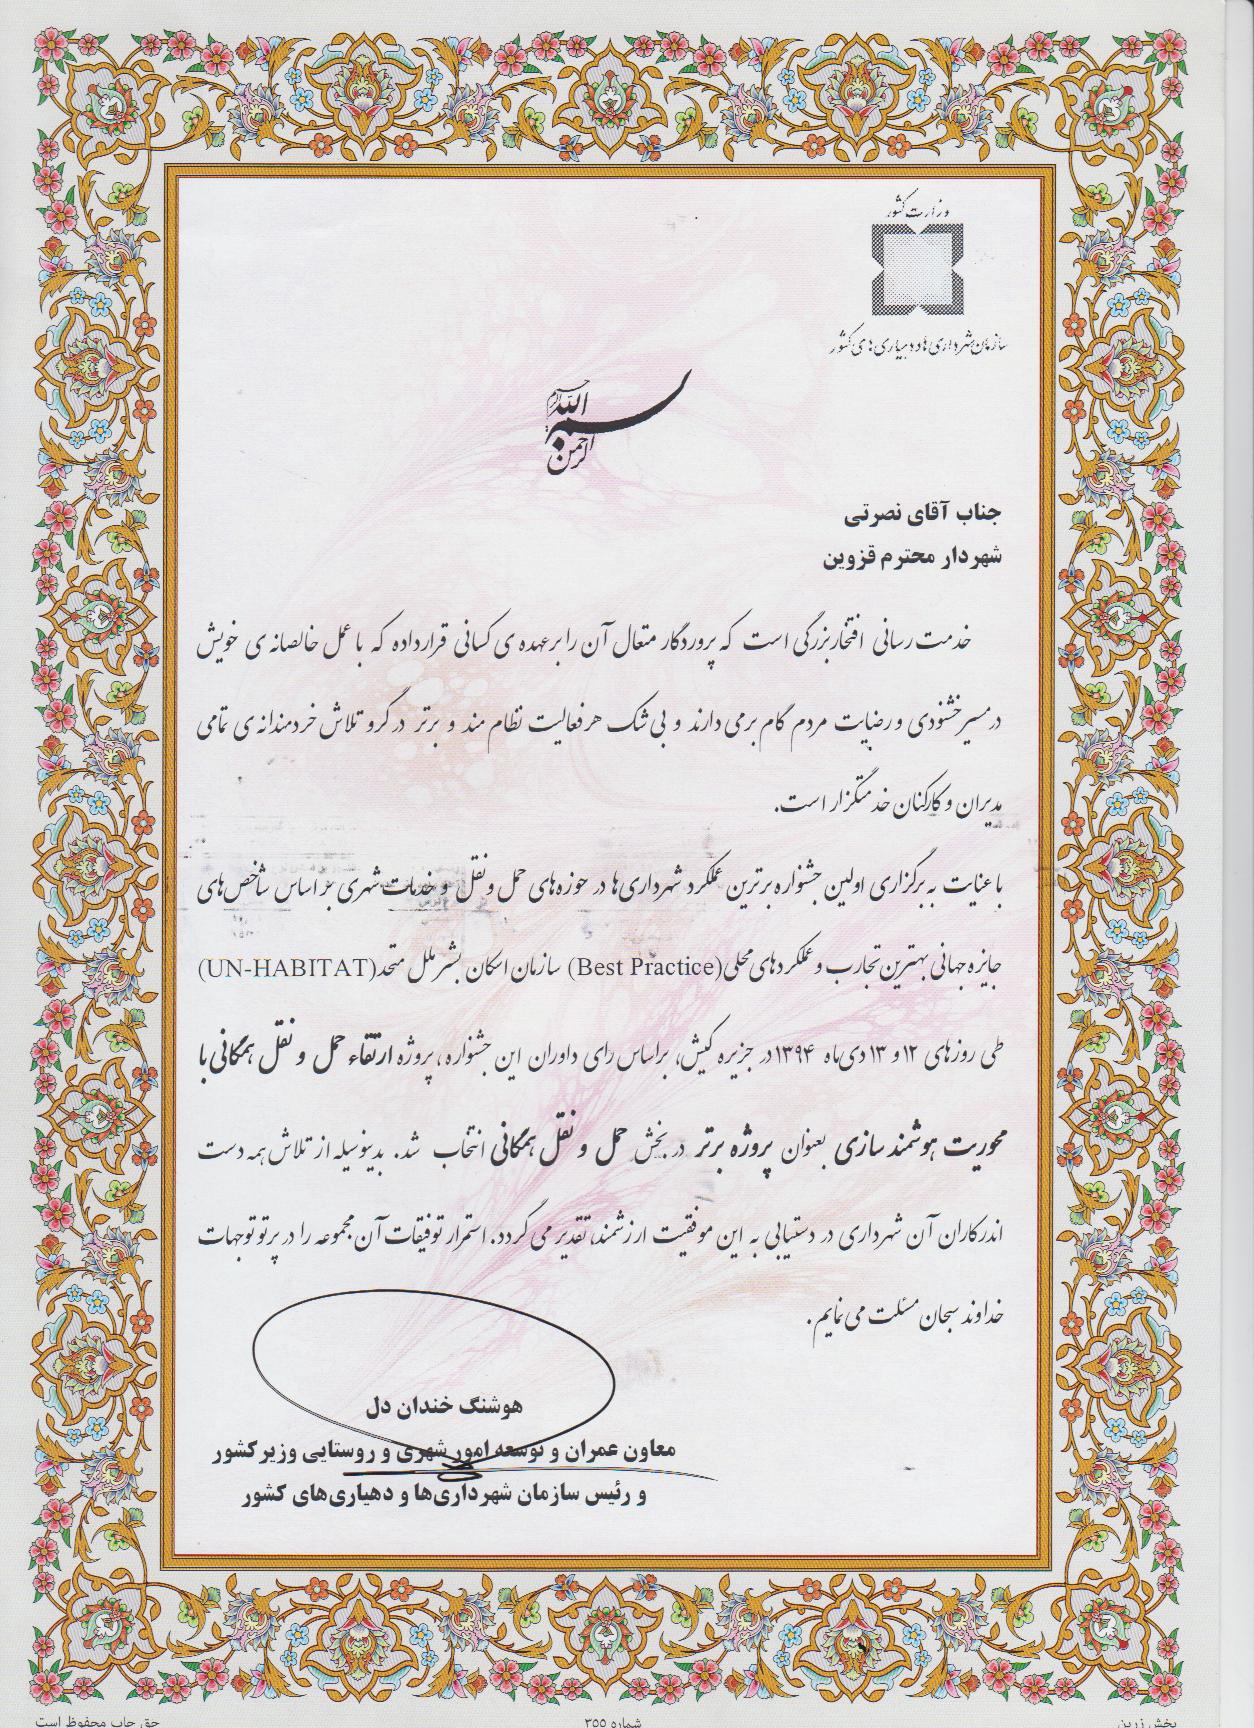 وزارت کشور
سازمان شهرداری‌ها و دهیاری‌های کشور
بسم الله الرحمن الرحیم
جناب آقای نصرتی
شهردار محترم قزوین
خدمت رسانی افتخار بزرگی است که پروردگار متعال آن را بر عهده ی کسانی قرار داده که با عمل خالصانه ی خویش
در مسیر خشنودی و رضایت مردم گام برمی دارند و بی شک هر فعالیت نظام مند و برتر در گرو تلاش خردمندانه ی تمامی
مدیران و کارکنان خدمتگزار است.
با عنایت به برگزاری اولین جشنواره برترین عملکرد شهرداری‌ها در حوزه‌های حمل و نقل و خدمات شهری بر اساس شاخص‌های
جایزه جهانی بهترین تجارب و عملکردهای محلی (Best Practice) سازمان اسکان بشر ملل متحد (UN-HABITAT)
طی روزهای ۱۲ و ۱۳ دی‌ماه ۱۳۹۴ در جزیره کیش، براساس رای داوران این جشنواره، پروژه ارتقاء حمل و نقل همگانی با
محوریت هوشمند سازی بعنوان پروژه برتر در بخش حمل و نقل همگانی انتخاب شد. بدینوسیله از تلاش همه دست
اندرکاران آن شهرداری در دستیابی به این موفقیت ارزشمند، تقدیر می گردد. استمرار توفیقات آن مجموعه را در پرتو توجهات
خداوند سبحان مسئلت می نمایم.
هوشنگ خندان دل
معاون عمران و توسعه امور شهری و روستایی وزیر کشور
و رئیس سازمان شهرداری‌ها و دهیاری‌های کشور
پخش زرین
شماره ۳۵۵
حق چاپ محفوظ است